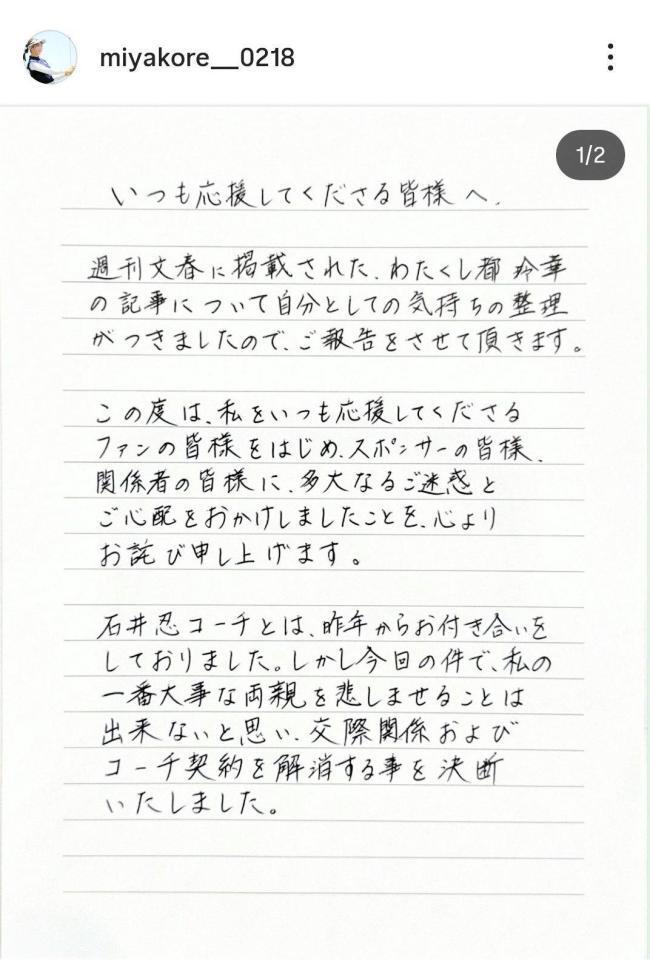 miyakore__0218
1/2
いつも応援してくださる皆様へ.
週刊文春に掲載された、わたくし都 玲華
の記事について自分としての気持ちの整理
がつきましたので、ご報告をさせて頂きます。
この度は、私をいつも応援してくださる
ファンの皆様をはじめ、スポンサーの皆様、
関係者の皆様に、多大なるご迷惑と
ご心配をおかけしましたことを、心より
お詫び申し上げます。
石井忍コーチとは、昨年からお付き合いを
しておりました。しかし今回の件で、私の
一番大事な両親を悲しませることは
出来ないと思い、交際関係および
コーチ契約を解消する事を決断
いたしました。